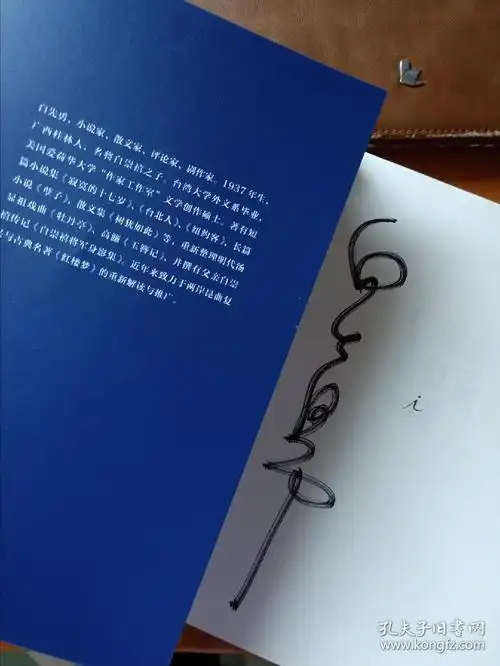 白先勇，小说家、散文家、评论家、剧作家。1937年生，
广西桂林人，名将白崇禧之子。台湾大学外文系毕业，
美国爱荷华大学“作家工作室”文学创作硕士。著有短
篇小说集《寂寞的十七岁》、《台北人》、《纽约客》，长篇
小说《孽子》，散文集《树犹如此》等，重新整理明代汤
显祖戏曲《牡丹亭》、高濂《玉簪记》，并撰有父亲白崇
禧传记《白崇禧将军身影集》。近年来致力于两岸昆曲复
与古典名著《红楼梦》的重新解读与推广。
i
孔夫子旧书网
www.kongfz.com